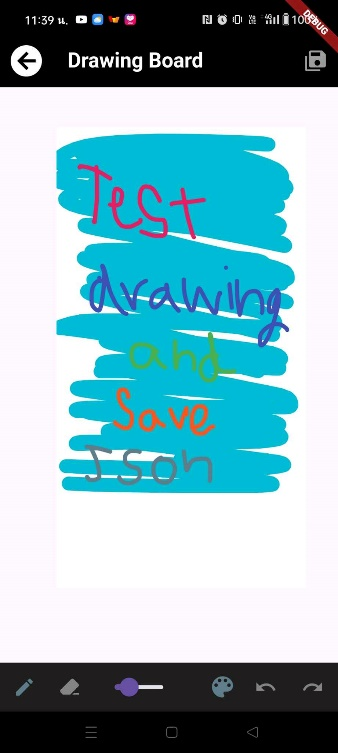 11:39 น.
100%
DEBUG
Drawing Board
Test
drawing
and
Save
Json